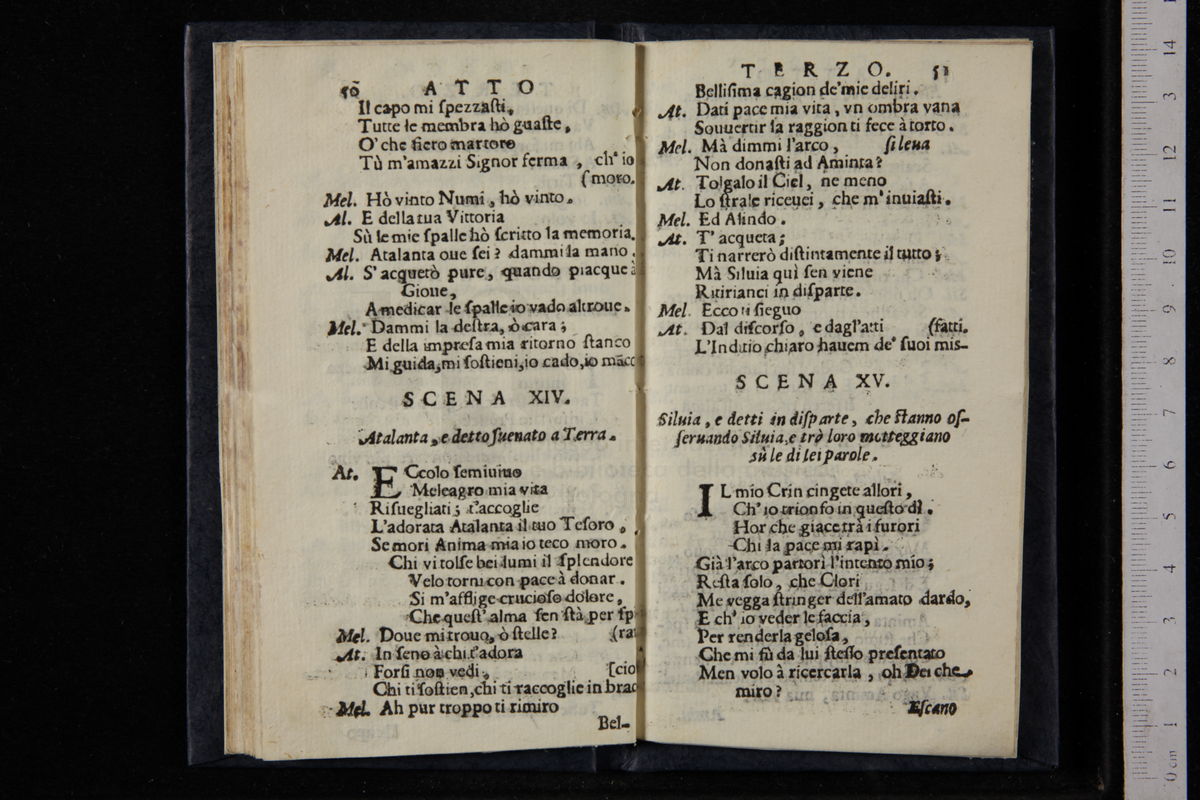 50 ATTO
Il capo mi ſpezzaſti,
Tutte le membra hò guaſte,
O' che fiero martore
Tù m'amazzi Signor ferma, ch' io
(moro.
Mel. Hò vinto Numi, hò vinto.
Al. E della tua Vittoria
Sù le mie ſpalle hò ſcritto la memoria.
Mel. Atalanta oue ſei? dammi la mano.
Al. S'acquetò pure, quando piacque à
Gioue,
A medicar le ſpalle io vado altroue.
Mel. Dammi la deſtra, ò cara;
E della impreſa mia ritorno ſtanco
Mi guida, mi ſoſtieni, io cado, io mãco
SCENA XIV.
Atalanta, e detto ſuenato a Terra.
At. ECcolo ſemiuiuo
Meleagro mia vita
Riſuegliati; t'accoglie
L'adorata Atalanta il tuo Teſoro,
Se mori Anima mia io teco moro.
Chi vi tolſe bei lumi il ſplendore
Velo torni con pace à donar.
Si m'afflige crucioſo dolore,
Che queſt' alma ſen ſtà per ſp
Mel. Doue mi trouo, ò ſtelle? (rar
At. In ſeno à chi t'adora
Forſi non vedi, [cio
Chi ti ſoſtien, chi ti raccoglie in brac
Mel. Ah pur troppo ti rimiro
Bel-
TERZO. 51
Belliſima cagion de'mie deliri.
At. Dati pace mia vita, vn ombra vana
Souuertir la raggion ti fece à torto.
Mel. Mà dimmi l'arco, ſilena
Non donaſti ad Aminta?
At. Tolgalo il Ciel, ne meno
Lo ſtrale riceuei, che m'inuiaſti.
Mel. Ed Alindo.
At. T' acqueta;
Ti narrerò diſtintamente il tutto;
Mà Siluia quì ſen viene
Ritirianci in diſparte.
Mel. Ecco ti ſieguo
At. Dal diſcorſo, e dagl'atti (fatti.
L'Inditio chiaro hauem de' ſuoi miſ-
SCENA XV.
Siluia, e detti in diſparte, che ſtanno oſ-
ſeruando Siluia, e trà loro motteggiano
sù le di lei parole.
IL mio Crin cingete allori,
Ch' io trionfo in queſto dì.
Hor che giace trà i furori
Chi la pace mi rapì.
Già l'arco partorì l'intento mio;
Reſta ſolo, che Clori
Me vegga ſtringer dell'amato dardo,
E ch' io veder le faccia,
Per renderla geloſa,
Che mi fù da lui ſteſſo preſentato
Men volo à ricercarla, oh Dei che
miro?
Eſcano